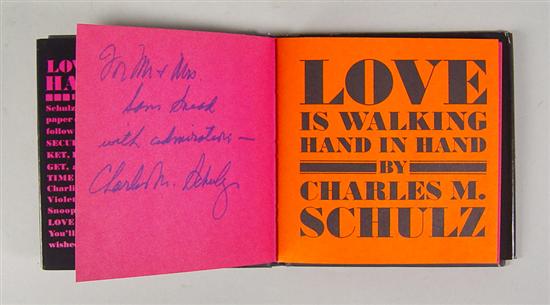 LOV
HA
Schulz
paper-
follow
SECU
KET, I
GET, a
TIME
Charli
Violen
Snoop
LOVE
You'll
wished
For Mr & Mrs.
Sam Snead
with admiration —
Charles M. Schulz
LOVE
IS WALKING
HAND IN HAND
BY
CHARLES M.
SCHULZ